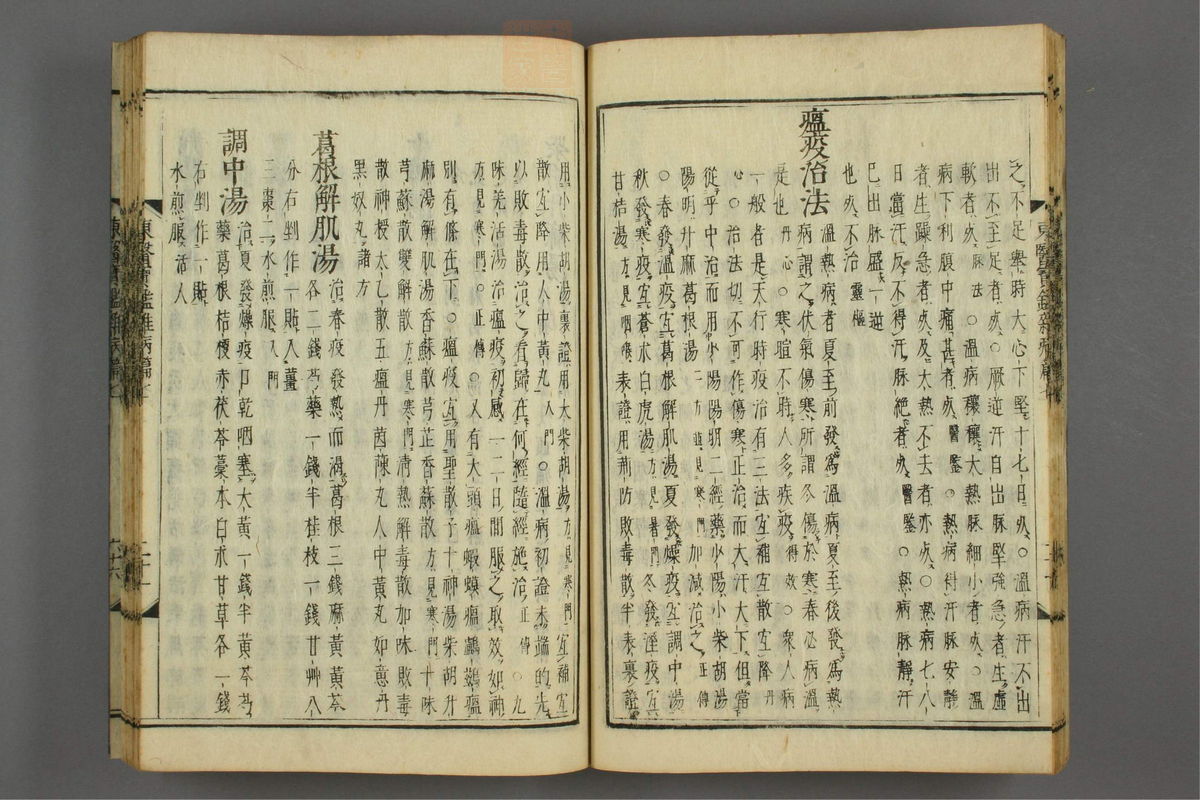 之不足擧時大心下堅十七日死○溫病汗不出
出不至足者死○厥逆汗自出脉堅強急者生虛
軟者死脉法○溫病穰穰大熱脉細小者死○溫
病下利腹中痛甚者死醫鑒○熱病得汗脉安靜
者生躁急者死及大熱不去者亦死○熱病七八
日當汗反不得汗脉絶者死醫鑒○熱病脉靜汗
已出脉盛一逆
也死不治靈樞
瘟疫治法
溫熱病者夏至前發爲溫病夏至後發爲熱
病謂之伏氣傷寒所謂冬傷於寒春必病溫
是也丹心○寒暄不時人多疾疫得效○衆人病
一般者是天行時疫治有三法宜補宜散宜降丹
心○治法切不可作傷寒正治而大汗大下但當
從乎中治而用少陽陽明二經藥少陽小柴胡湯
陽明升麻葛根湯二方並見寒門加減治之正傳
○春發溫疫宜葛根解肌湯夏發燥疫宜調中湯
秋發寒疫宜蒼朮白虎湯方見暑門冬發溼疫宜
甘桔湯方見咽喉表證用荊防敗毒散半表裏證
用小柴胡湯裏證用大柴胡湯方見寒門宜補宜
散宜降用人中黃丸入門○溫病初證未端的先
以敗毒散治之看歸在何經隨經施治正傳○九
味羌活湯治瘟疫初感一二日間服之取效如神
方見寒門○正傳○又有大頭瘟蝦蟆瘟鸕鷀瘟
別有條在下○瘟疫宜用聖散子十神湯柴胡升
麻湯解肌湯香蘇散芎芷香蘇散方見寒門十味
芎蘇散雙解散方見寒門淸熱解毒散加味敗毒
散神授太乙散五瘟丹茵蔯丸人中黃丸如意丹
黑奴丸諸方
葛根解肌湯
治春疫發熱而渴葛根三錢麻黃黃芩
各二錢芍藥一錢半桂枝一錢甘艸八
分右剉作一貼入薑
三棗二水煎服入門
調中湯
治夏發燥疫口乾咽塞大黃一錢半黃芩芍
藥葛根桔梗赤茯苓藁本白朮甘草各一錢
右剉作一貼
水煎服活人